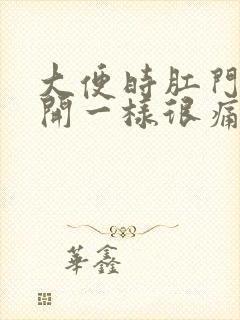 大便時肛門
開一樣很痛
華鑫